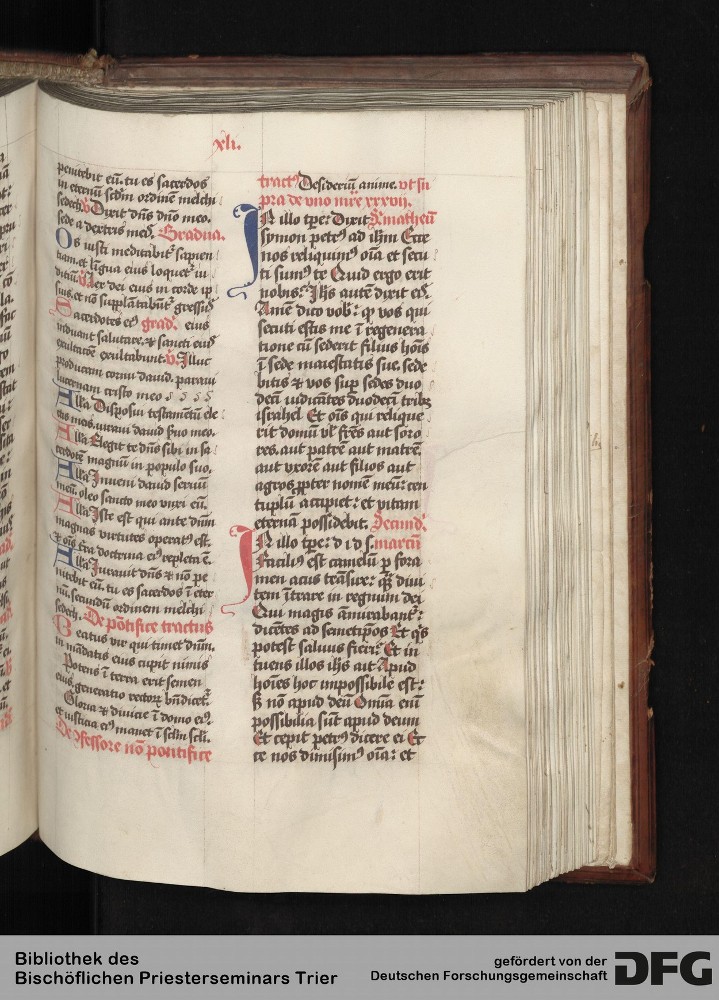 xli.
penitebit eū. tu es sacerdos
in eternū scd̄m ordinē melchi
sedech. v Dixit dn̄s dn̄o meo.
sede a dextris meis. Gradua.
Os iusti meditabit᷑ sapien
tiam. et lingua eius loquet᷑ iu
diciū. v Lex dei eius in corde ip
sius. et nō supplātabūt᷑ gressꝰ
Sacerdotes eiꝰ grad᷑. eius
induant salutare. ⁊ sancti eiꝰ
exultacōe exultabunt. v Illuc
producam cornu dauid. paraui
lucernam cristo meo
Allā. Disposui testamētū ele
ctis meis. iuraui dauid ẜuo meo.
Allā. Elegit te dn̄s sibi in sa
cerdotē magnū in populo suo.
Allā. Inueni dauid seruū
meū. oleo sancto meo vnxi eū.
Allā. Iste est qui ante dn̄m
magnas virtutes operatꝰ est.
⁊ oīs t̄ra doctrina eiꝰ repleta ē.
Allā. Iurauit dn̄s ⁊ nō pe
nitebit eū. tu es sacerdos ī eter
nū. secundū ordinem melchi
sedech. De pōtifice tractus
Beatus vir qui timet dn̄m.
in mādatis eius cupit nimis
Potens ī terra erit semen
eius. generatio rectoꝝ bn̄dicet᷑.
Gloria ⁊ diuicie ī domo eiꝰ.
et iusticia eiꝰ manet ī sclm̄ scli.
De ꝯfessore nō pontifice
tractꝰ Desideriū anime. vt su
pra de vno mr̄e xxxvij.
In illo tpr̄e: Dixit S. matheū
symon petrꝰ ad ih̄m Ecce
nos reliquimꝰ oīa et secu
ti sumꝰ te Quid ergo erit
nobis? Ih̄s autē dixit eis.
Amē dico vob̄: ꝙ vos qui
secuti estis me ī regenera
tione cū sederit filius hoīs
ī sede maiestatis sue. sede
bitis ⁊ vos suꝑ sedes duo
decī iudicātes duodecī tribꝰ
israhel Et oīs qui relique
rit domū vl̄ fr̄es aut soro
res. aut patrē aut matrē.
aut vxorē aut filios aut
agros ꝓpter nomē meū: cen
tuplū accipiet: et vitam
eternā possidebit. Secund᷑.
In illo tpr̄e: d i d s. marcū
Facilius est camelū ꝑ fora
men acus trāsire: qᷓ diui
tem ītrare in regnum dei
Qui magis āmirabant᷑:
dicētes ad semetip̄os Et qͥs
potest saluus fieri? Et in
tuens illos ih̄s ait Apud
hoīes hoc impossibile est:
ẜ nō apud deū Omīa enī
possibilia sūt apud deum
Et cepit petrꝰ dicere ei Ec
ce nos dimisimꝰ oīa: et
Bibliothek des
Bischöflichen Priesterseminars Trier
gefördert von der
Deutschen Forschungsgemeinschaft
DFG